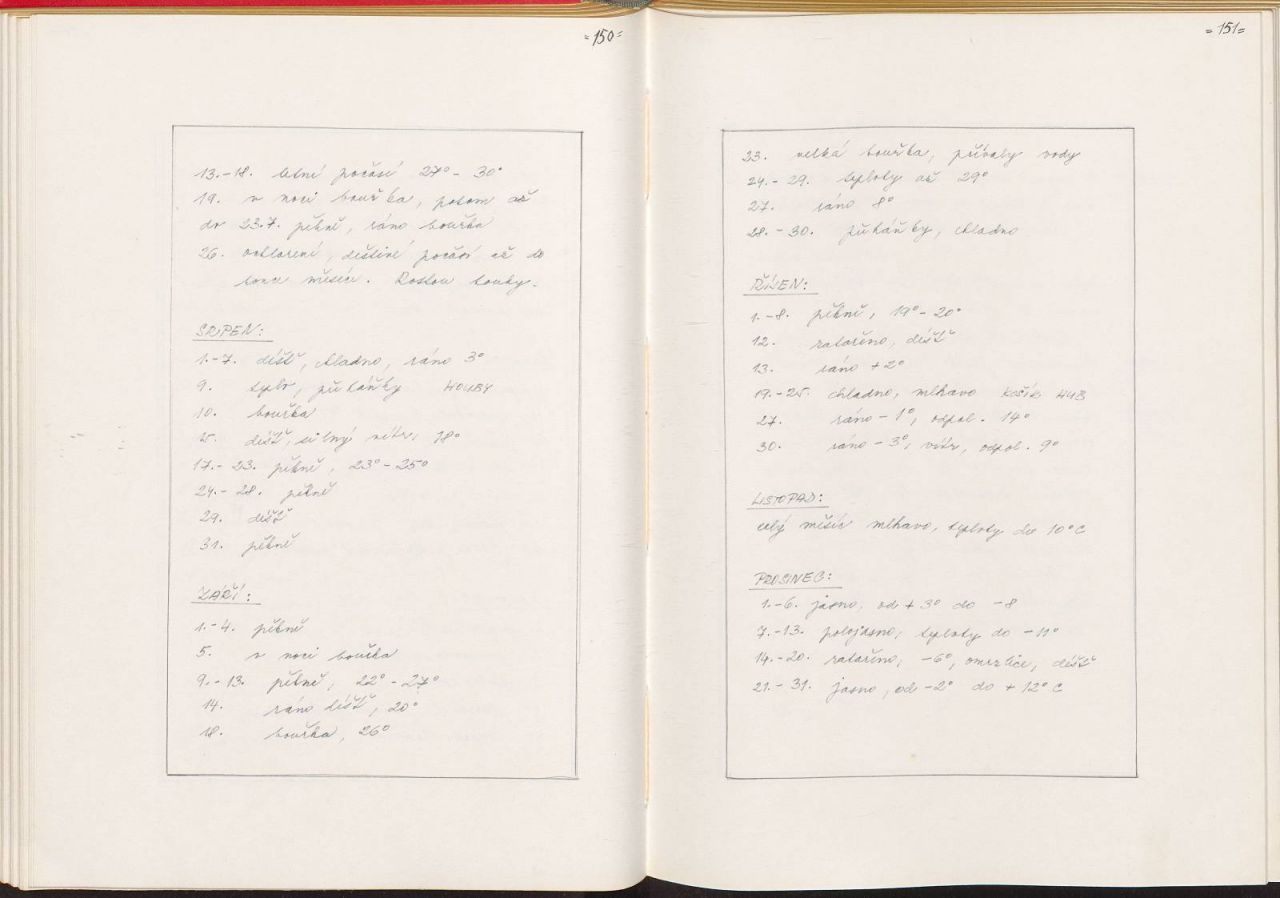 =150=
13.-18. letní počasí 27° - 30°
19. v noci bouřka, potom až
do 23.7. pěkně, ráno bouřka
26. ochlazení, deštivé počasí až do
konce měsíce. Rostou houby.
SRPEN:
1.-7. déšť, chladno, ráno 3°
9. teplo, přeháňky HOUBY
10. bouřka
15. déšť, silný vítr, 18°
17.-23. pěkně, 23° - 25°
24.-28. pěkně
29. déšť
31. pěkně
ZÁŘÍ:
1.-4. pěkně
5. v noci bouřka
9.-13. pěkně, 22° - 27°
14. ráno déšť, 20°
18. bouřka, 26°
=151=
23. velká bouřka, přívaly vody
24.-29. teploty až 29°
27. ráno 8°
28.-30. přeháňky, chladno
ŘÍJEN:
1.-8. pěkně, 19° - 20°
12. zataženo, déšť
13. ráno +2°
19.-25. chladno, mlhavo KOŠÍK HUB
27. ráno -1°, odpol. 14°
30. ráno -3°, vítr, odpol. 9°
LISTOPAD:
celý měsíc mlhavo, teploty do 10°C
PROSINEC:
1.-6. jasno, od +3° do -8
7.-13. polojasno, teploty do -11°
14.-20. zataženo, -6°, omrzlice, déšť
21.-31. jasno, od -2° do +12°C